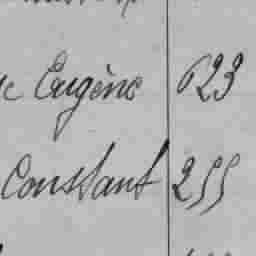 Eugène 623
Constant 255